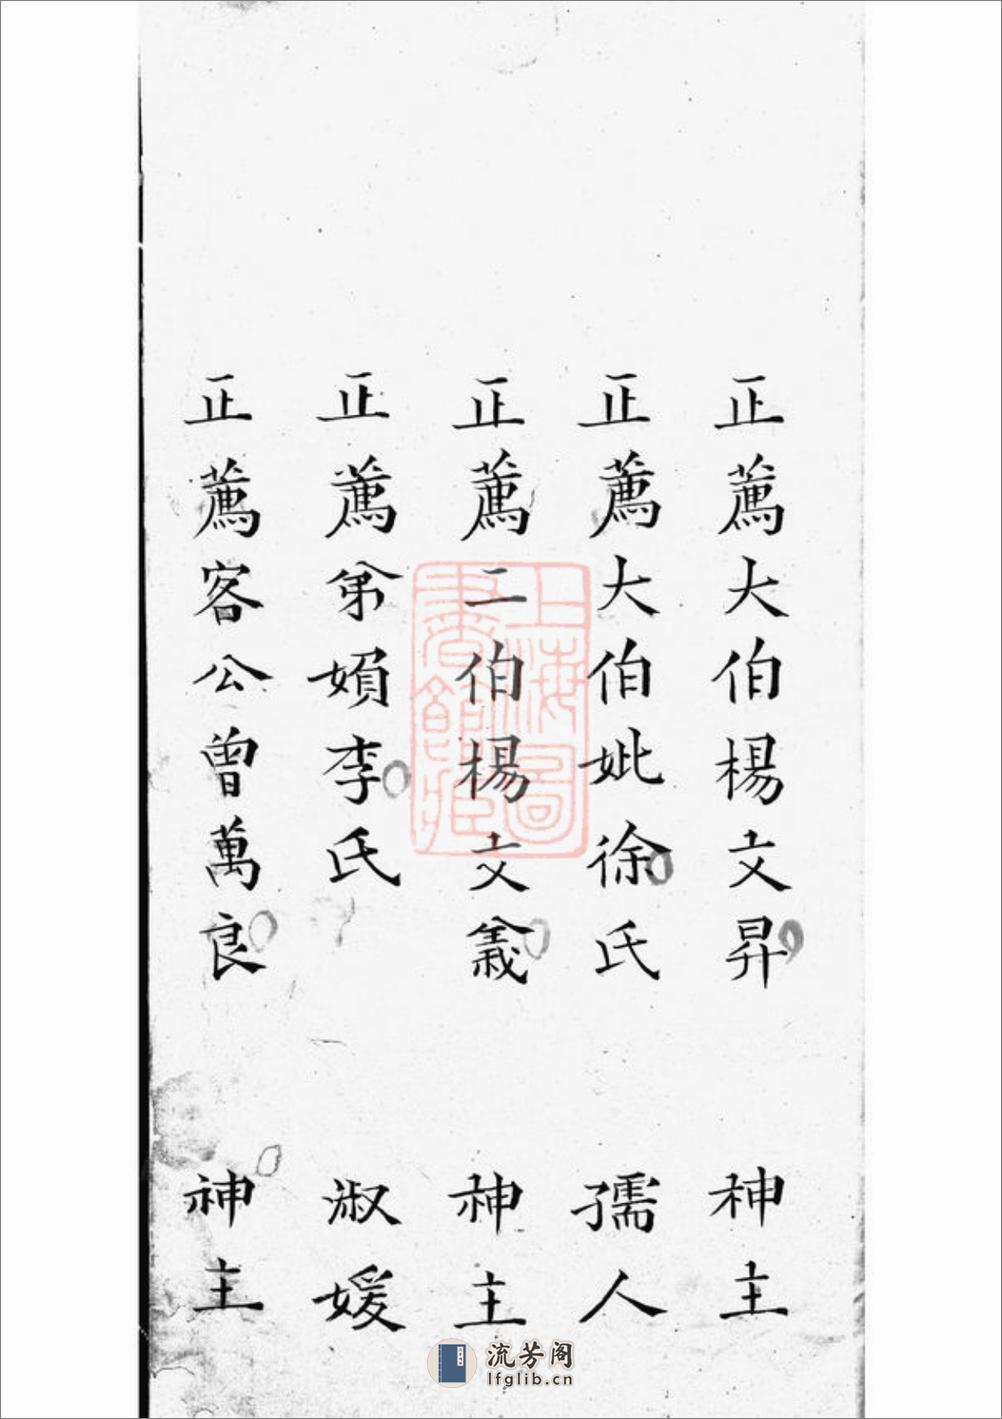 正薦大伯楊文昇 神主
正薦大伯妣徐氏 孺人
正薦二伯楊文義 神主
正薦弟媍李氏 淑媛
正薦客公曾萬良 神主
上海圖書館藏
流芳阁
lfglib.cn